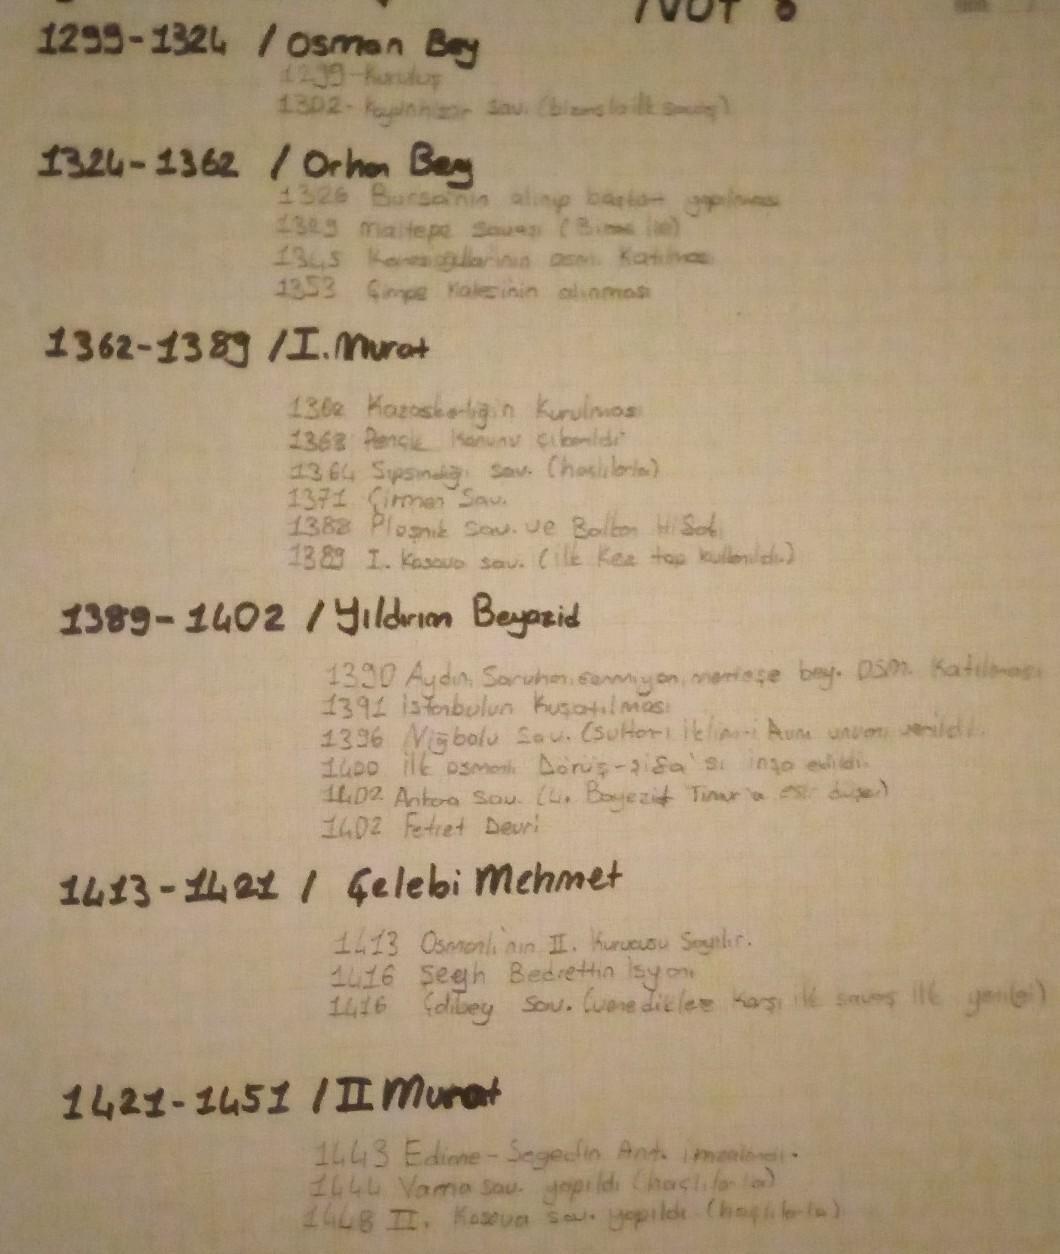 NOT 8
1299-1324 / Osman Bey
1299-Kuruluş
1302- Koyunhisar Sav. (bizansla ilk savaş)
1324-1362 / Orhan Bey
1326 Bursa'nın alınıp başkent yapılması
1329 Maltepe Savaşı (Bizans ile)
1345 Karesioğullarının osm. Katılması
1353 Çimpe Kalesinin alınması
1362-1389 / I. Murat
1362 Kazaskerliğin Kurulması
1363 Pençik Kanunu çıkarıldı
1364 Sıpsındığı sav. (haçlılarla)
1371 Çirmen Sav.
1388 Ploşnik sav. ve Balkan
1389 I. Kosova sav. (ilk kez top kullanıldı.)
1389-1402 / Yıldırım Beyazid
1390 Aydın, Saruhan, Germiyan, menteşe bey. osm. Katılması
1391 istanbulun Kuşatılması
1396 Niğbolu Sav. (Sultan-ı iklim-i Rum unvanı verildi.
1400 ilk osmanlı Dârüş-şifa'sı inşa edildi.
1402 Ankara sav. (Bayezit Timur'a esir düşer)
1402 Fetret Devri
1413-1421 / Çelebi Mehmet
1413 Osmanlı'nın II. Kurucusu Sayılır.
1416 Şeyh Bedrettin isyanı
1416 Çalıbey sav. (venediklere karşı ilk savaş ilk yenilgi)
1421-1451 / II Murat
1443 Edirne-Segedin Ant. imzalandı.
1444 Varna sav. yapıldı (haçlılarla)
1448 II. Kosova sav. yapıldı (haçlılarla)